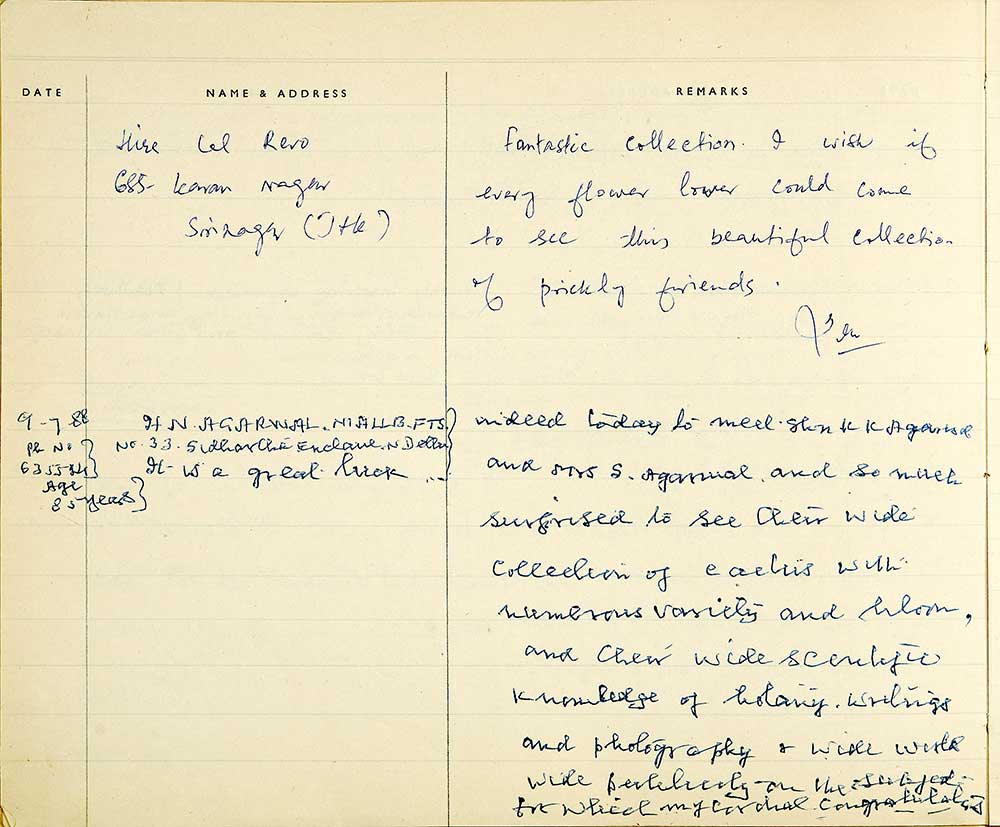 DATE
NAME & ADDRESS
REMARKS
Lal
685- Karan Nagar
Srinagar (J+K)
Fantastic collection. I wish if
every flower lower could come
to see this beautiful collection
of prickly friends.
9-7-88
Ph No
Age
85 years
H.N. AGARWAL.
No. 33. Sidhartha Enclave. N. Delhi
It is a great luck ...
indeed today to meet Shri K K Agarwal
and Mrs S. Agarwal. and so much
surprised to see their wide
collection of cactus with
numerous variety and bloom,
and their wide scientific
knowledge of botany. writings
and photography & wide world
wide publicity on the subject
for which my cordial congratulations